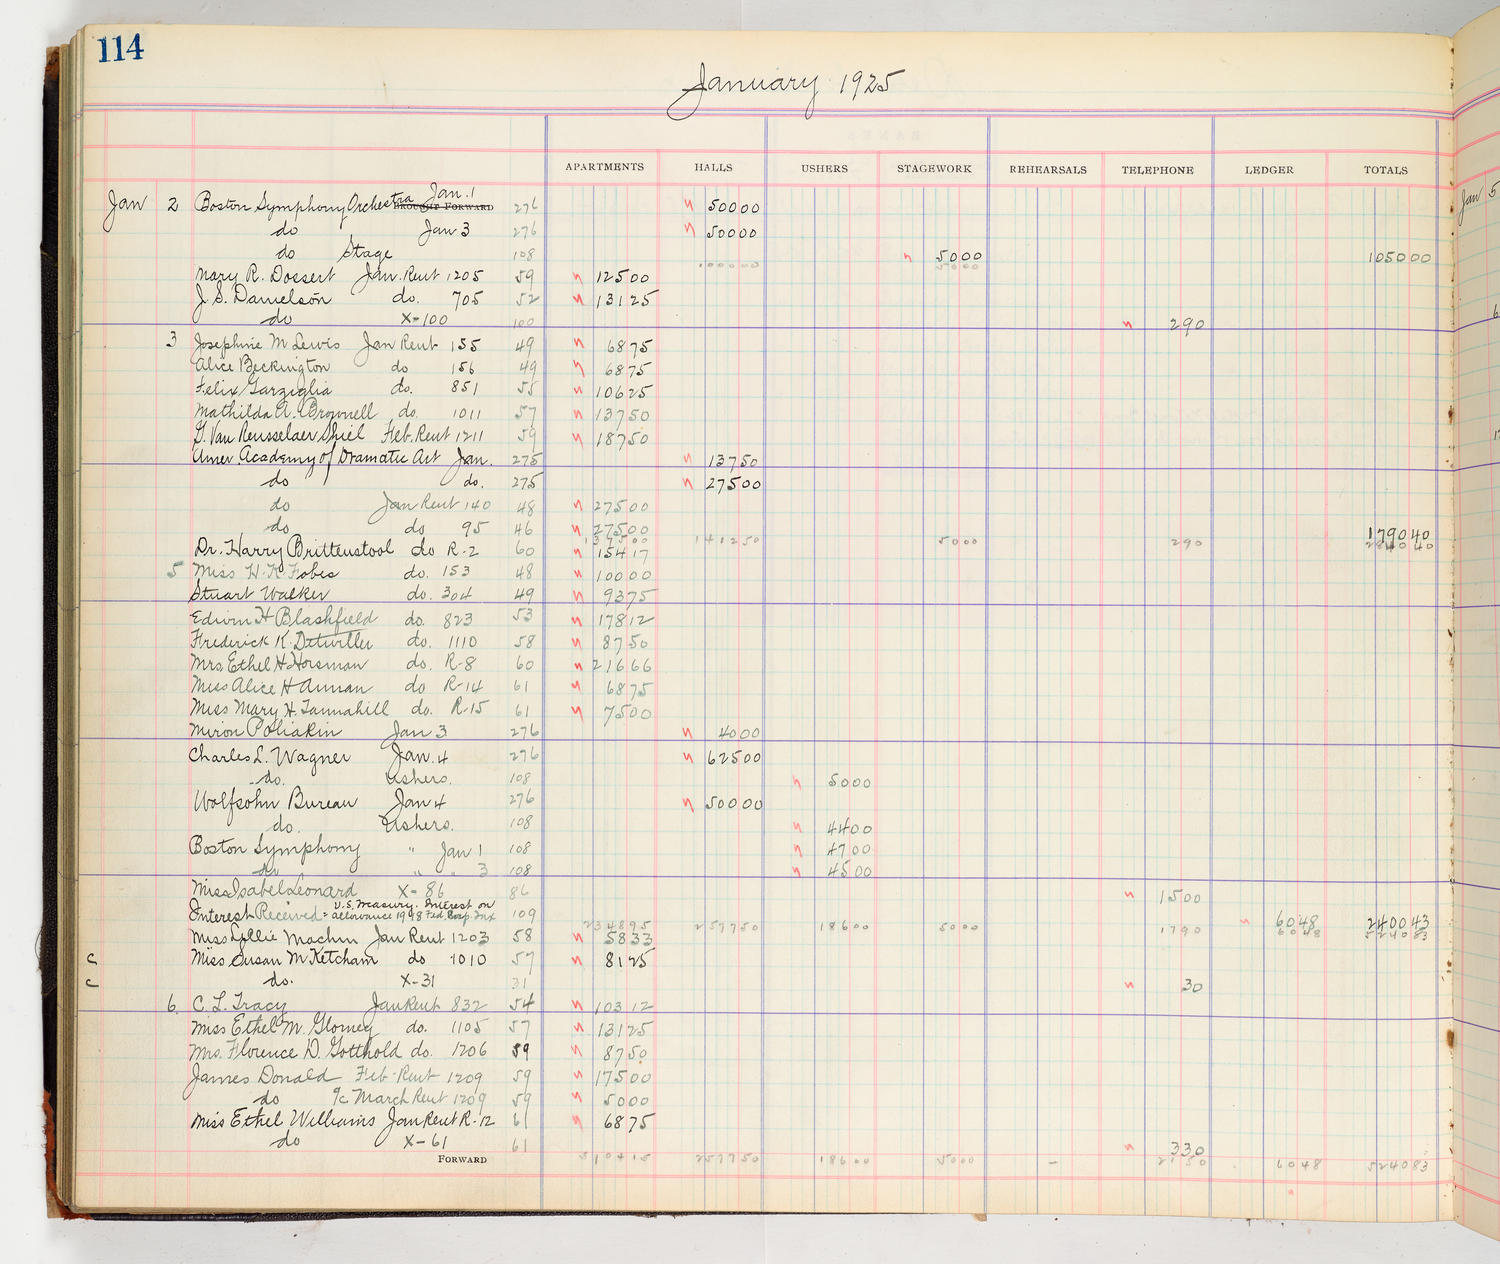 114
January 1925
APARTMENTS HALLS USHERS STAGEWORK REHEARSALS TELEPHONE LEDGER TOTALS
Jan 2 Boston Symphony Orchestra Jan. 1 BROUGHT FORWARD 276 50000
do Jan 3 276 50000
do Stage 108 5000 105000
100000 5000
Mary R. Dossert Jan. Rent 1205 59 12500
J. S. Danielson do. 705 52 13125
do X-100 100 290
3 Josephine M Lewis Jan Rent 155 49 6875
Alice Beckington do 156 49 6875
Felix Garziglia do. 851 55 10625
Mathilda A. Brownell do. 1011 57 13750
G. Van Rensselaer Shiel Feb. Rent 1211 59 18750
Amer. Academy of Dramatic Art Jan. 275 13750
do do. 275 27500
do Jan Rent 140 48 27500
do do 95 46 27500 179040
137500 141250 5000 290 284040
Dr. Harry Brittenstool do R-2 60 15417
5 Miss H. K. Fobes do. 153 48 10000
Stuart Walker do. 304 49 9375
Edwin H Blashfield do. 823 53 17812
Frederick K. Detwiller do. 1110 58 8750
Mrs Ethel H Horsman do. R-8 60 21666
Miss Alice H Annan do R-14 61 6875
Miss Mary H. Tannahill do. R-15 61 7500
Miron Poliakin Jan 3 276 4000
Charles L. Wagner Jan. 4 276 62500
do. Ushers. 108 5000
Wolfsohn Bureau Jan 4 276 50000
do. Ushers. 108 4400
Boston Symphony " Jan 1 108 4700
do " " 3 108 4500
Miss Isabel Leonard X-86 86 1500
U.S. Treasury. Interest on
Interest Received = allowance 1918 Fed. Corp. Tax 109 6048 240043
234895 257750 18600 5000 1790 6048 524083
Miss Lillie Machin Jan Rent 1203 58 5833
c Miss Susan M Ketcham do 1010 57 8125
c do. X-31 31 30
6. C. L. Tracy Jan Rent 832 54 10312
Miss Ethel M. Glorney do. 1105 57 13125
Mrs. Florence D. Gotthold do. 1206 59 8750
James Donald Feb-Rent 1209 59 17500
do a/c March Rent 1209 59 5000
Miss Ethel Williams Jan Rent R-12 61 6875
do X-61 61 330
FORWARD 310415 257750 18600 5000 - 2150 6048 524083
Jan 5